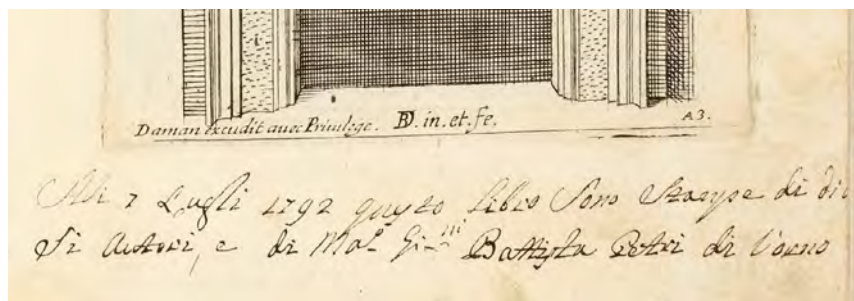 Daman excudit avec Privilege. BD. in. et. fe. A3.
Adi 7 Lugli 1792 questo Libro Sono Stampe di di
si Autori, e di Mo.º Gio ni Battista Petri di